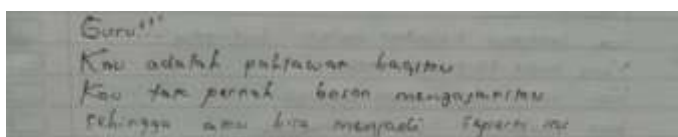 Guru'''
Kau adalah pahlawan bagimu
Kau tak pernah bosan mengajarimu
sehingga amu bisa menjadi seperti ini